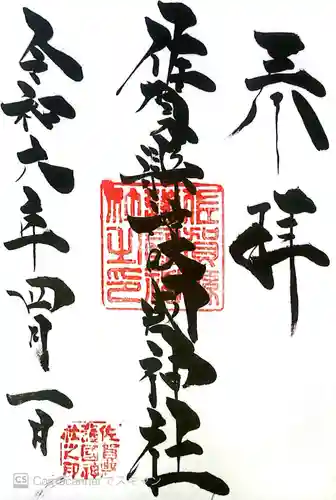 奉拝
佐賀縣護國神社
令和六年四月一日
佐賀縣護國神社之印
佐賀縣護國神社之印
CS CamScanner でスキャン